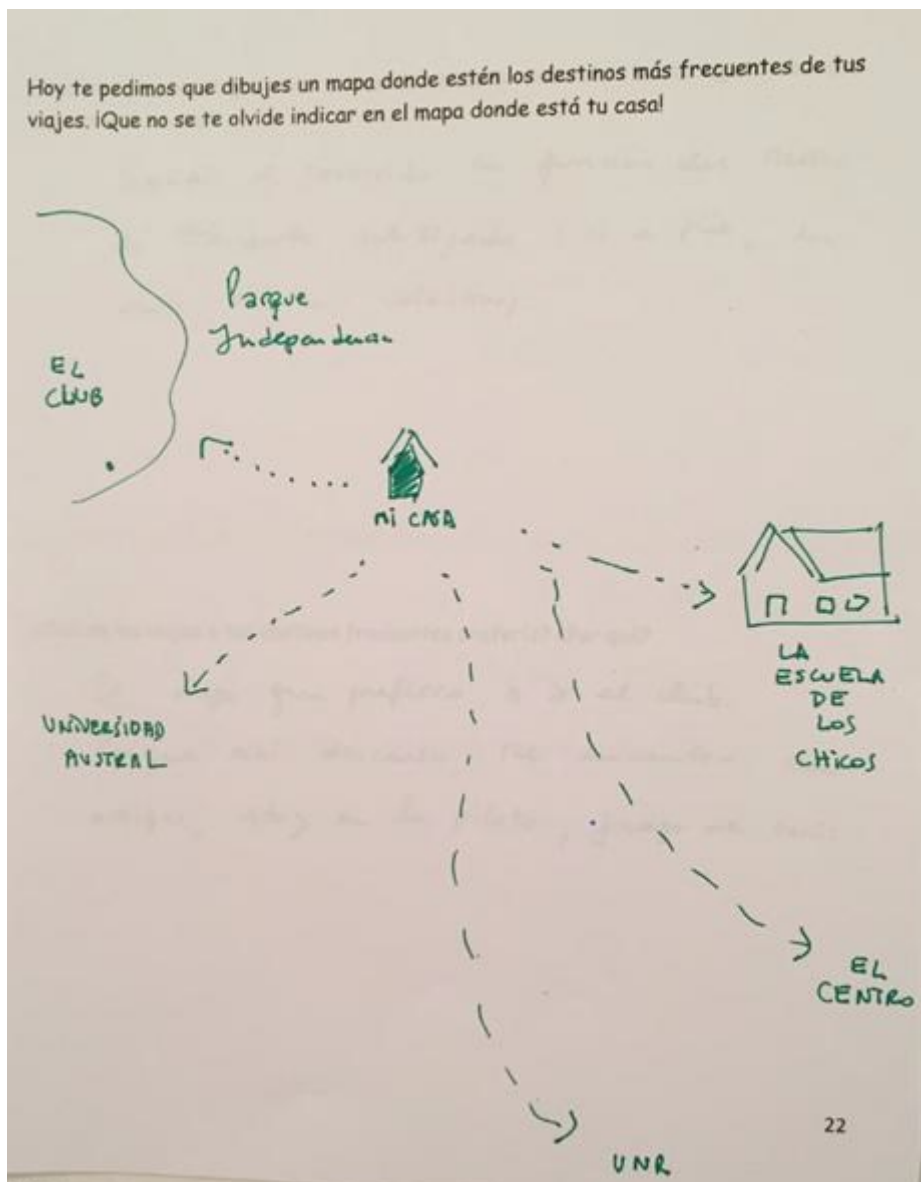 Hoy te pedimos que dibujes un mapa donde estén los destinos más frecuentes de tus
viajes. ¡Que no se te olvide indicar en el mapa donde está tu casa!
Parque
Independencia
EL
CLUB
mi CASA
LA
ESCUELA
DE
LOS
CHICOS
UNIVERSIDAD
AUSTRAL
EL
CENTRO
22
UNR